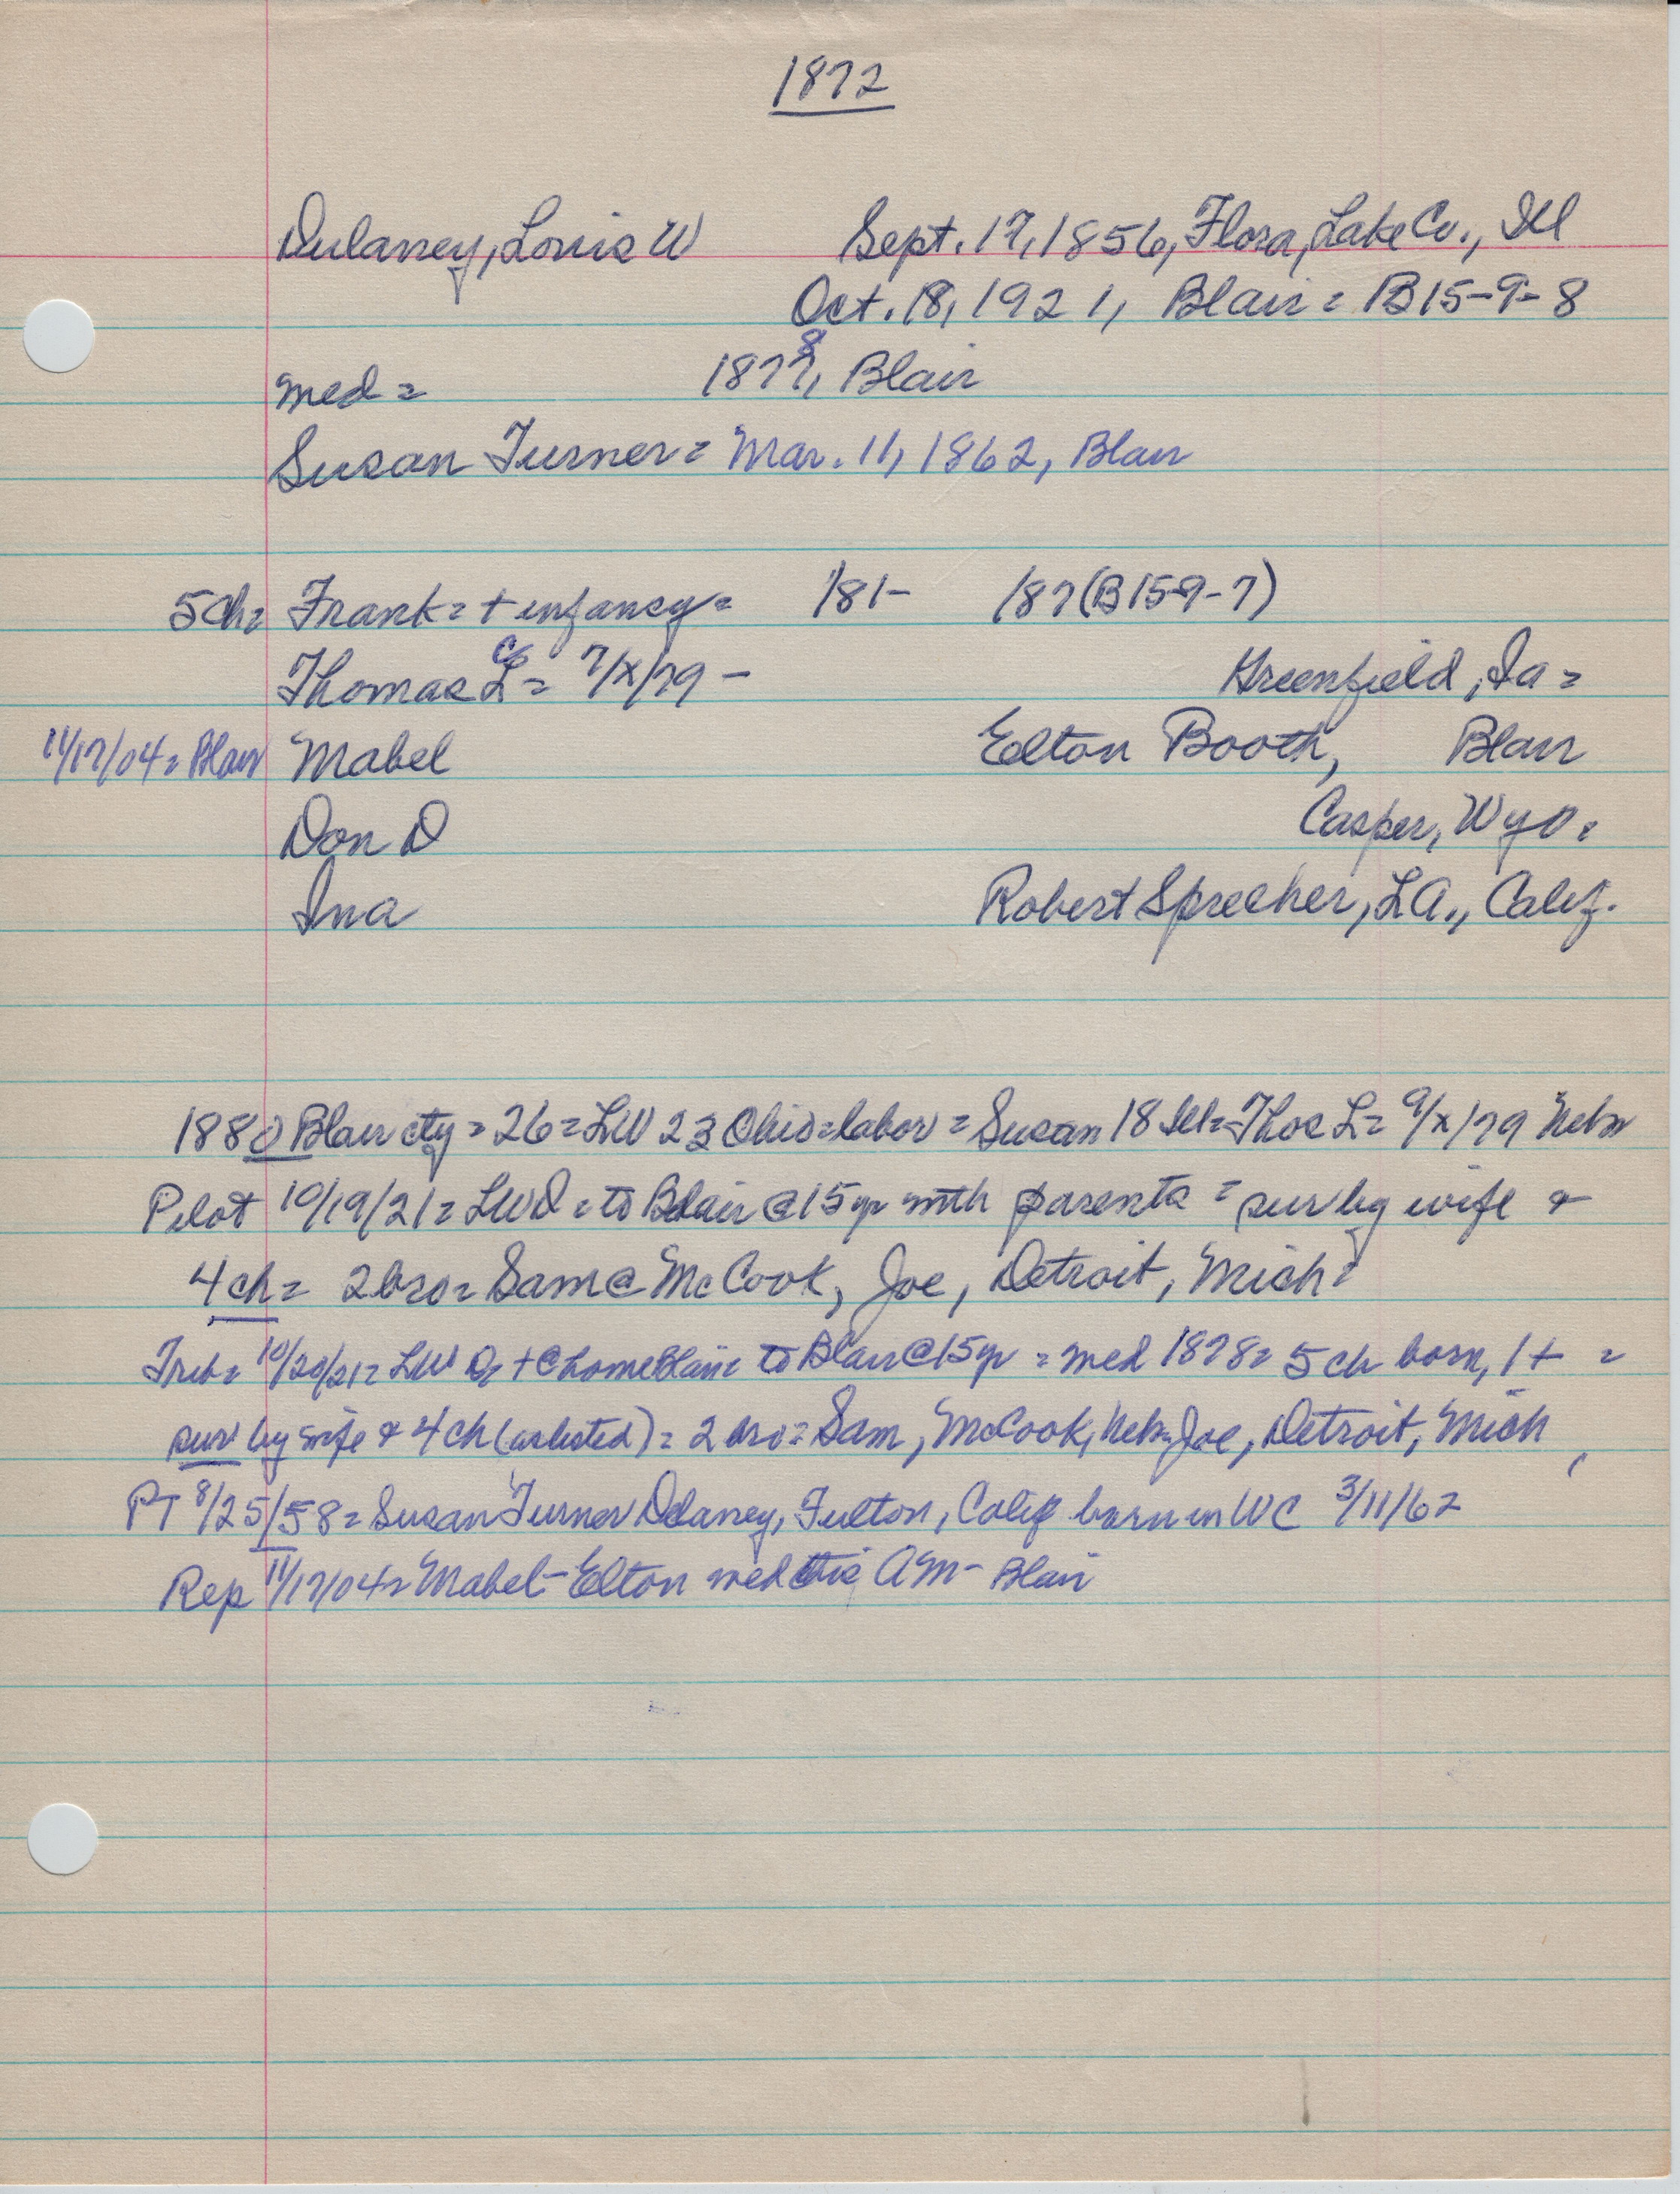 1872
Dulaney, Louis W Sept. 17, 1856, Flora, Lake Co., Ill
Oct. 18, 1921, Blair = B15-9-8
8
med = 1877, Blair
Susan Turner = Mar. 11, 1862, Blair
5ch = Frank = + infancy = 181- 187 (B15-9-7)
Thomas L = 9/x/79 - Greenfield, Ia =
11/17/04 = Blair Mabel Elton Booth, Blair
Don D Casper, Wyo.
Ina Robert Sprecher, LA., Calif.
1880 Blair cty = 26 = LW 23 Ohio = labor = Susan 18 Ill = Thos L = 9/x/79 Nebr
Pilot 10/19/21 = LWD = to Blair @ 15 yr with parents = sur by wife &
4 ch = 2 bro = Sam @ McCook, Joe, Detroit, Mich =
Trib = 10/20/21 = LW D = + @ home Blair = to Blair @ 15 yr = med 1878 = 5 ch born, 1 + =
sur by wife & 4 ch (as listed) = 2 bro = Sam, McCook, Nebr = Joe, Detroit, Mich
PT 8/25/58 = Susan Turner Delaney, Fulton, Calif born in WC 3/11/62
Rep 11/17/04 = Mabel - Elton med this AM - Blair